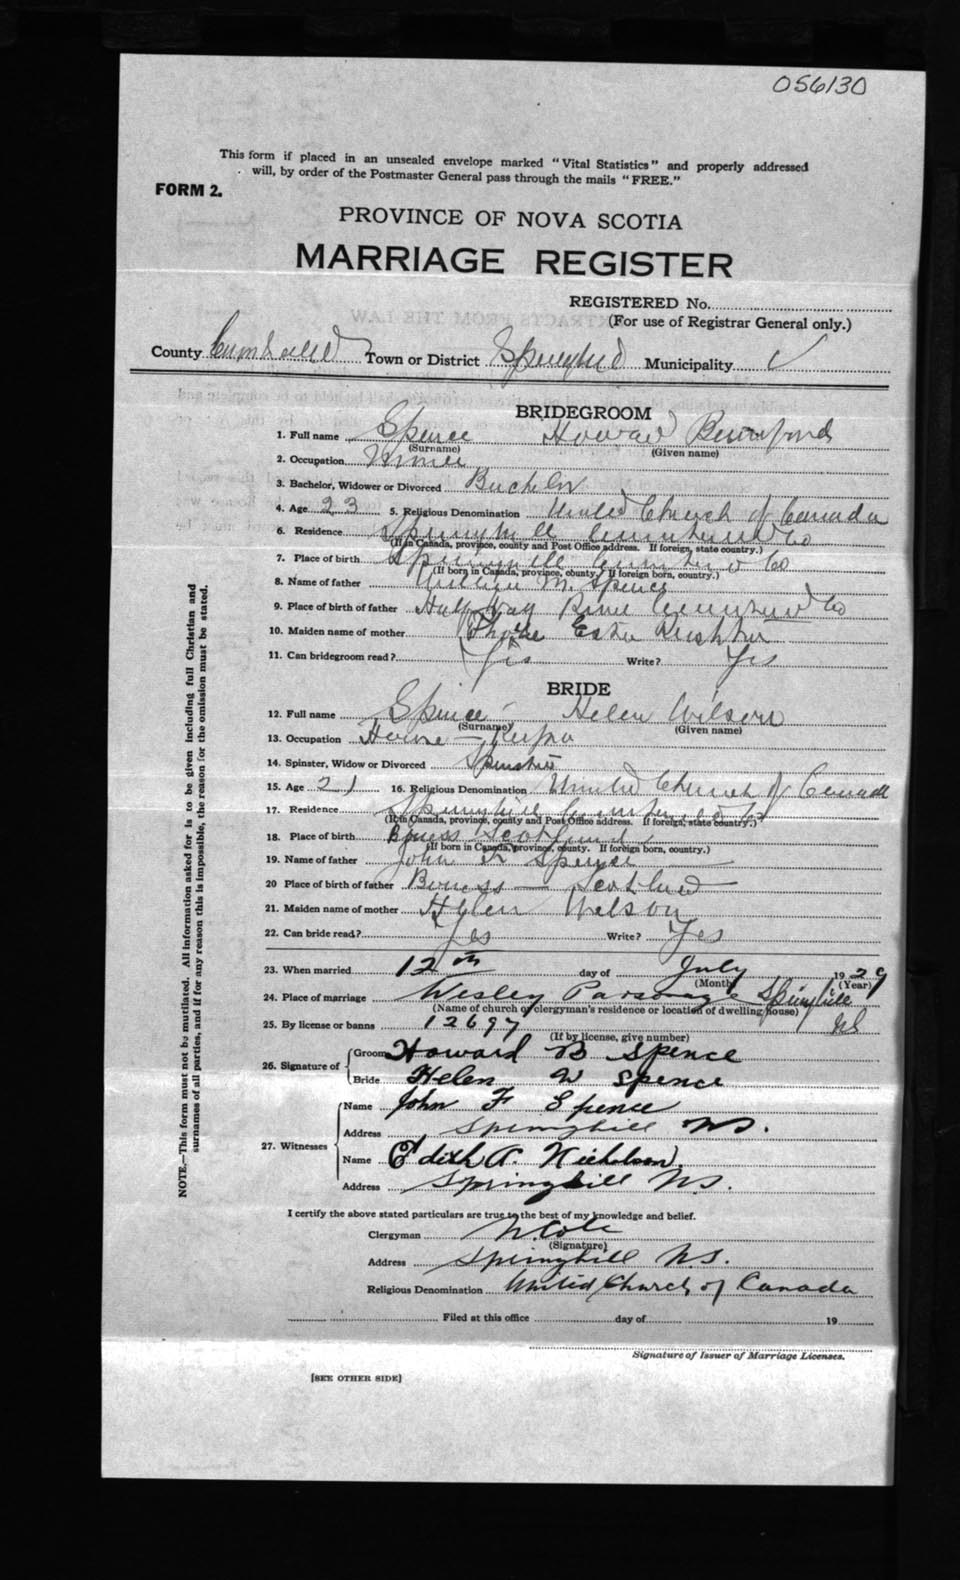 056130
This form if placed in an unsealed envelope marked "Vital Statistics" and properly addressed
will, by order of the Postmaster General pass through the mails "FREE."
FORM 2.
PROVINCE OF NOVA SCOTIA
MARRIAGE REGISTER
REGISTERED No.
(For use of Registrar General only.)
County Cumberland Town or District Springhill Municipality ✓
BRIDEGROOM
1. Full name Spence Howard
(Surname) (Given name)
2. Occupation
3. Bachelor, Widower or Divorced Bachelor
4. Age 23 5. Religious Denomination United Church of Canada
6. Residence Springhill Cumberland Co
(If in Canada, province, county and Post Office address. If foreign, state country.)
7. Place of birth Springhill Cumberland Co
(If born in Canada, province, county. If foreign born, country.)
8. Name of father William M. Spence
9. Place of birth of father Half Way River Cumberland Co
10. Maiden name of mother Phoebe
11. Can bridegroom read? Yes Write? Yes
BRIDE
12. Full name Spence - Helen Wilson
(Surname) (Given name)
13. Occupation House-Keeper
14. Spinster, Widow or Divorced Spinster
15. Age 21 16. Religious Denomination United Church of Canada
17. Residence Springhill Cumberland Co
(If in Canada, province, county and Post Office address. If foreign, state country.)
18. Place of birth Boness Scotland
(If born in Canada, province, county. If foreign born, country.)
19. Name of father John Spence
20 Place of birth of father Boness - Scotland
21. Maiden name of mother Helen Wilson
22. Can bride read? Yes Write? Yes
23. When married 12th day of July 1929
(Month) (Year)
24. Place of marriage Wesley Parsonage Springhill
(Name of church or clergyman's residence or location of dwelling house) NS
25. By license or banns 12697
(If by license, give number)
26. Signature of Groom Howard B Spence
Bride Helen W Spence
27. Witnesses Name John F Spence
Address Springhill N.S.
Name Edith A. Nicholson
Address Springhill N.S.
I certify the above stated particulars are true to the best of my knowledge and belief.
Clergyman Cole
(Signature)
Address Springhill N.S.
Religious Denomination United Church of Canada
Filed at this office day of 19
Signature of Issuer of Marriage Licenses.
[SEE OTHER SIDE]
NOTE.—This form must not be mutilated. All information asked for is to be given including full Christian and
surnames of all parties, and if for any reason this is impossible, the reason for the omission must be stated.